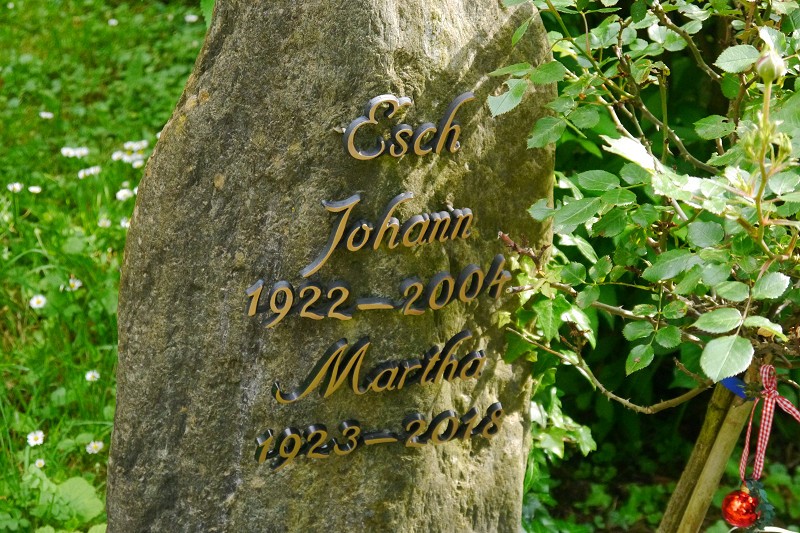 Esch
Johann
1922-2004
Martha
1923-2018